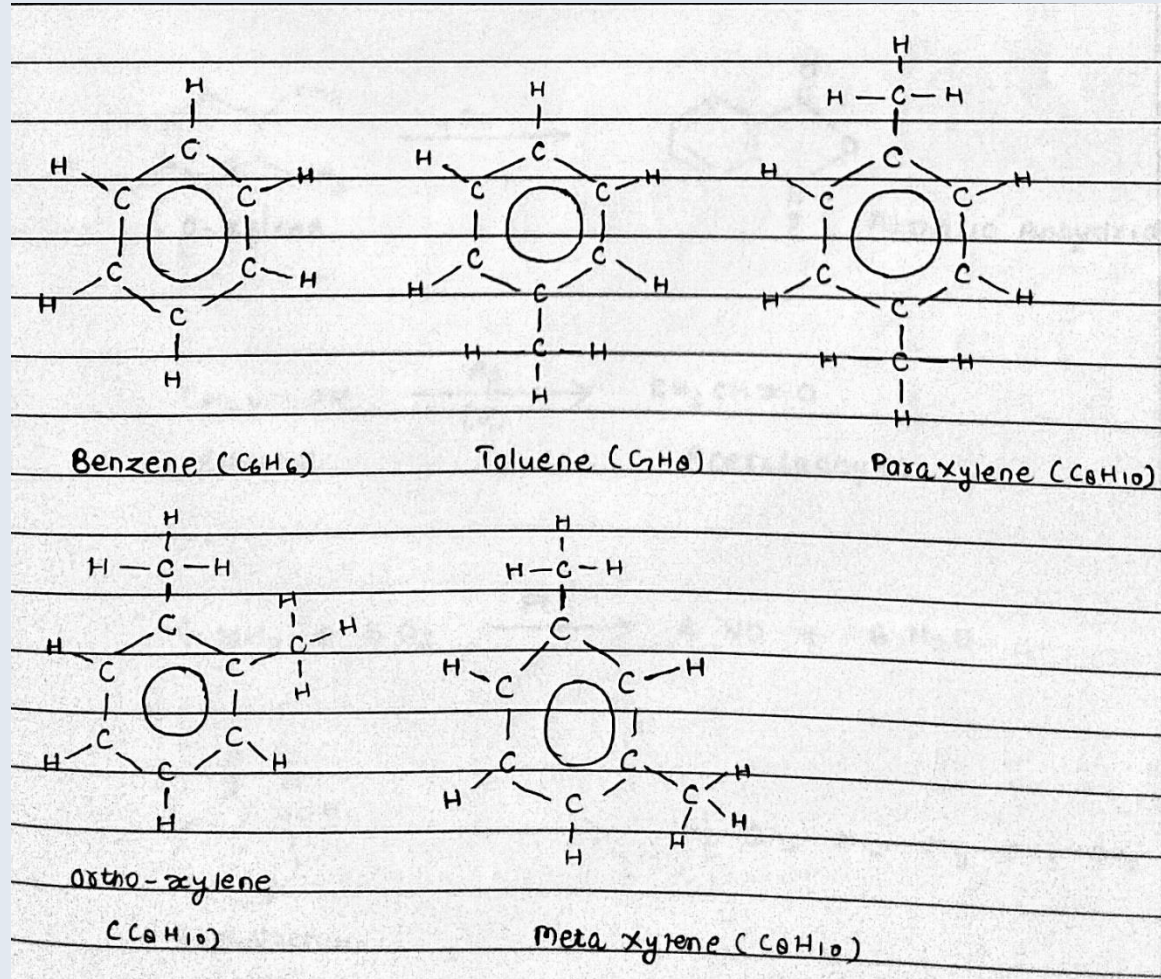 Benzene (C6H6)
Toluene (C7H8)
Para xylene (C8H10)
ortho-xylene
(C8H10)
Meta xylene (C8H10)